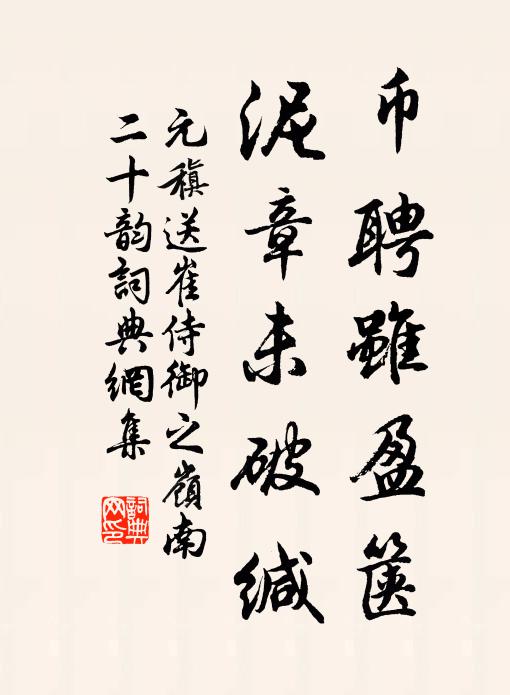 币聘雖盈篋
泥章未破緘
元稹送崔侍御之嶺南
二十韵詞典網集
詞典
网印